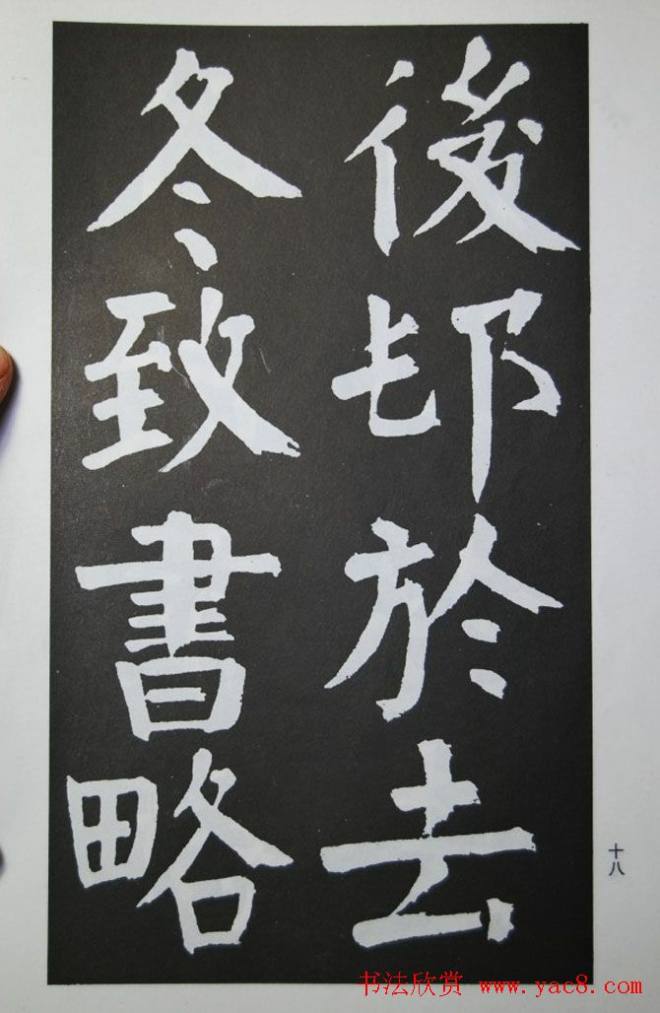 後邨於去
冬致書略
十八
书法欣赏 www.yac8.com